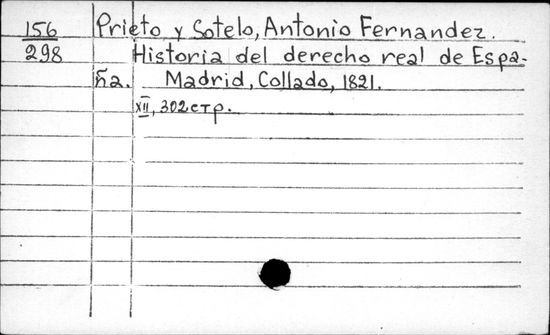 156 Prieto y Sotelo, Antonio Fernandez.
298 Historia del derecho real de Espa-
ña. Madrid, Collado, 1821.
XII, 302 стр.